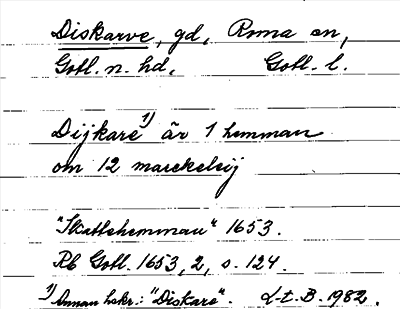 Diskarve, gd, Roma sn,
Gotl. n. hd. Gotl. l.
Dijkare 1) är 1 hemman
om 12 marckeleij
"Skattehemman" 1653.
Rb Gotl. 1653, 2, s. 124.
1) Annan hskr.: "Diskare". d-t. B. 1982.